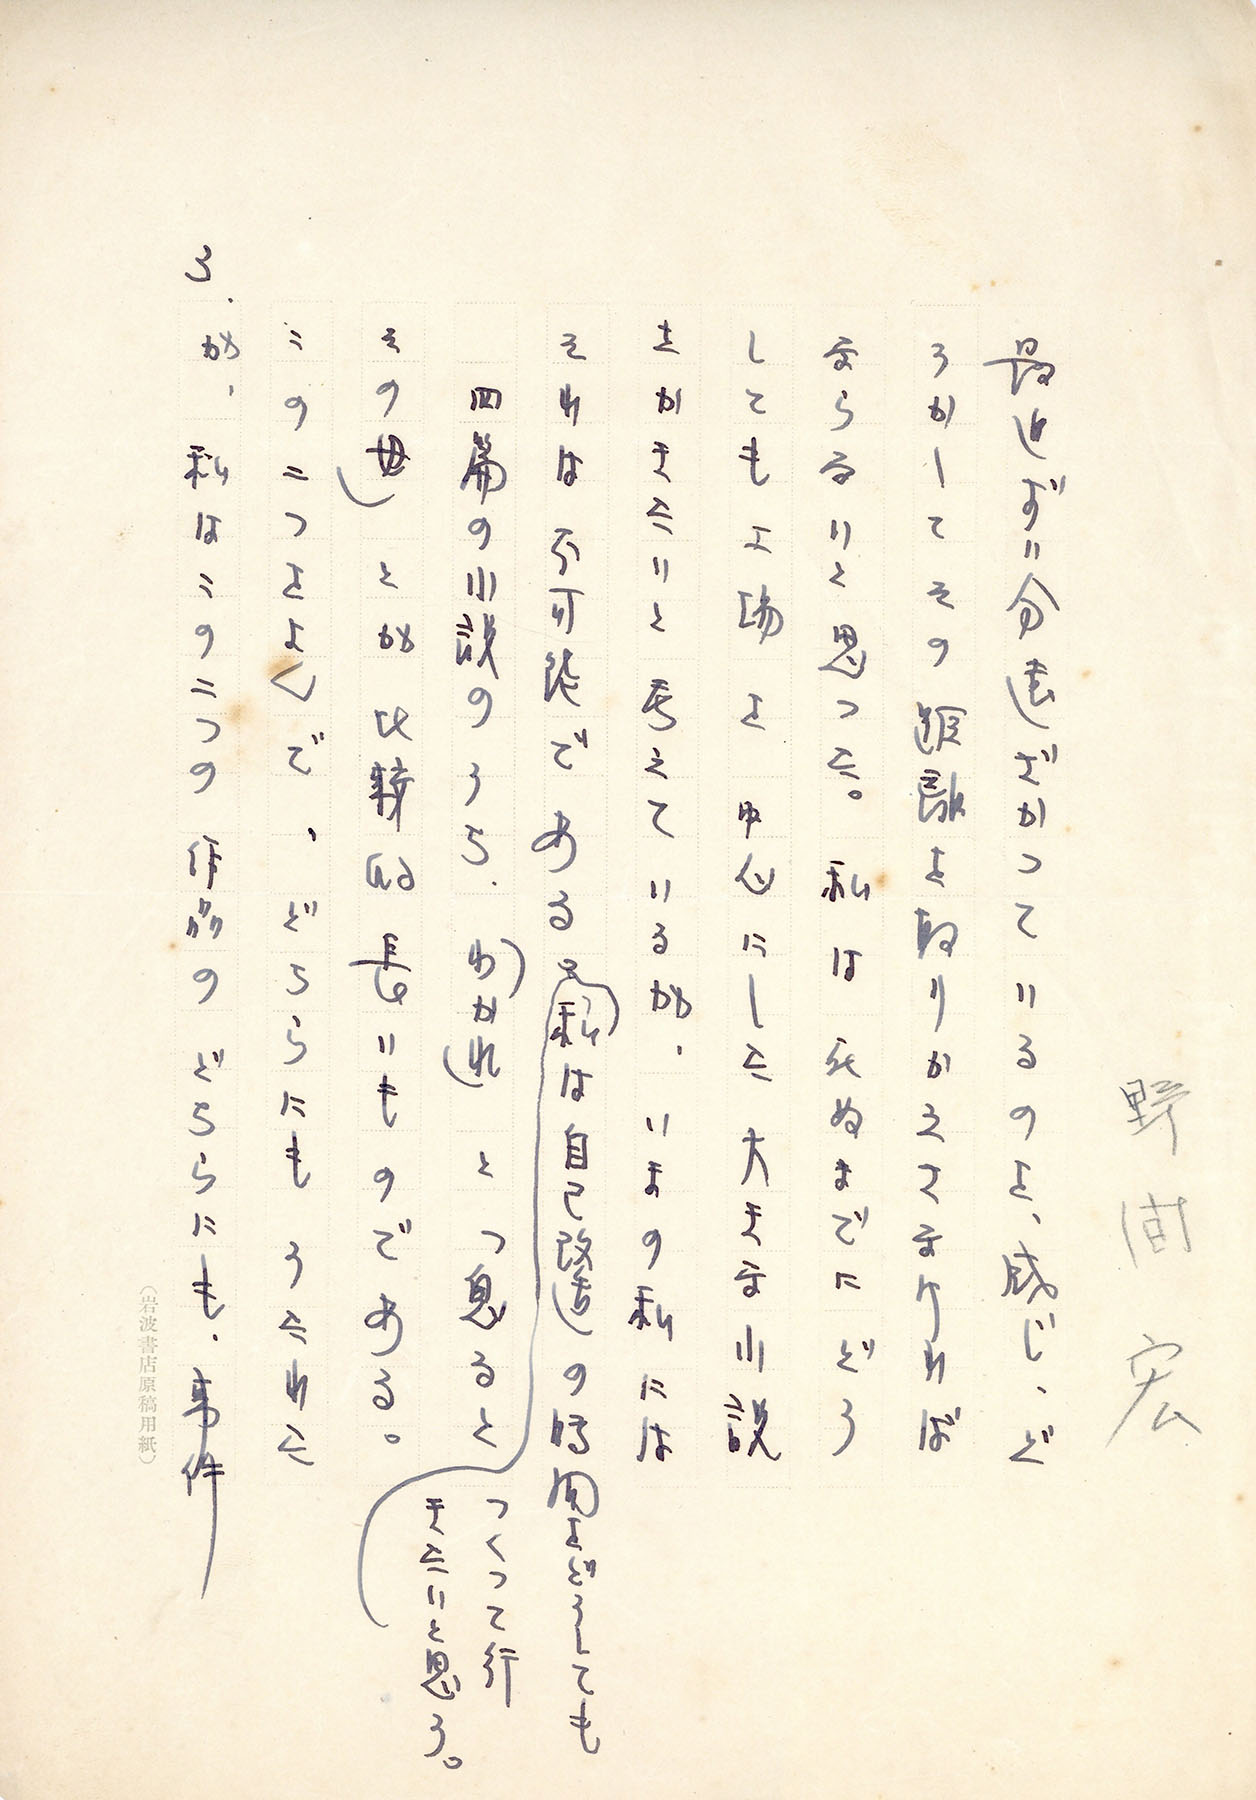 野間宏
最近ずい分遠ざかっているのを、感じ、ど
うかしてその距離を取りかえさなければ
ならないと思った。私は死ぬまでにどう
しても工場を中心にした大きな小説
をかきたいと考えているが、いまの私には
それは不可能である。私は自己改造の時間をどうしても
つくって行
きたいと思う。
四篇の小説のうち、「わかれ」と「息子と
その母」とが比較的長いものである。
この二つをよんで、どちらにもうたれた
3.
が、私はこの二つの作品のどちらにも、事件
(岩波書店原稿用紙)